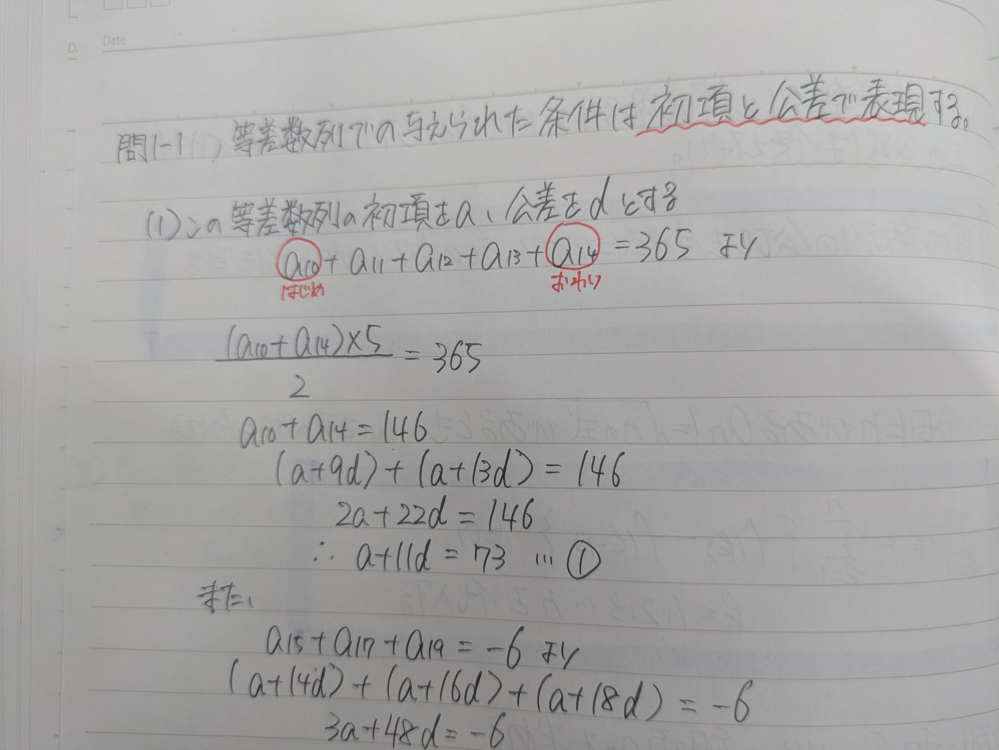 Date
問1-1 (1) 等差数列での与えられた条件は初項と公差で表現する。
(1)この等差数列の初項をa、公差をdとする
a10+a11+a12+a13+a14=365 より
はじめ おわり
(a10+a14)×5
= 365
2
a10+a14=146
(a+9d)+(a+13d)=146
2a+22d=146
∴ a+11d=73 … ①
また、
a15+a17+a19=-6 より
(a+14d)+(a+16d)+(a+18d)=-6
3a+48d=-6